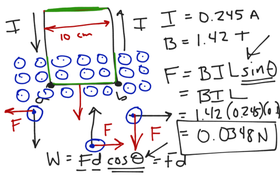 I
10 cm
I
a
b
F
F
F
I = 0.245 A
B = 1.42 T
F = BIL sin θ
= BIL
= 1.42 (0.245)(0.1)
= 0.0348 N
W = Fd cos θ = Fd